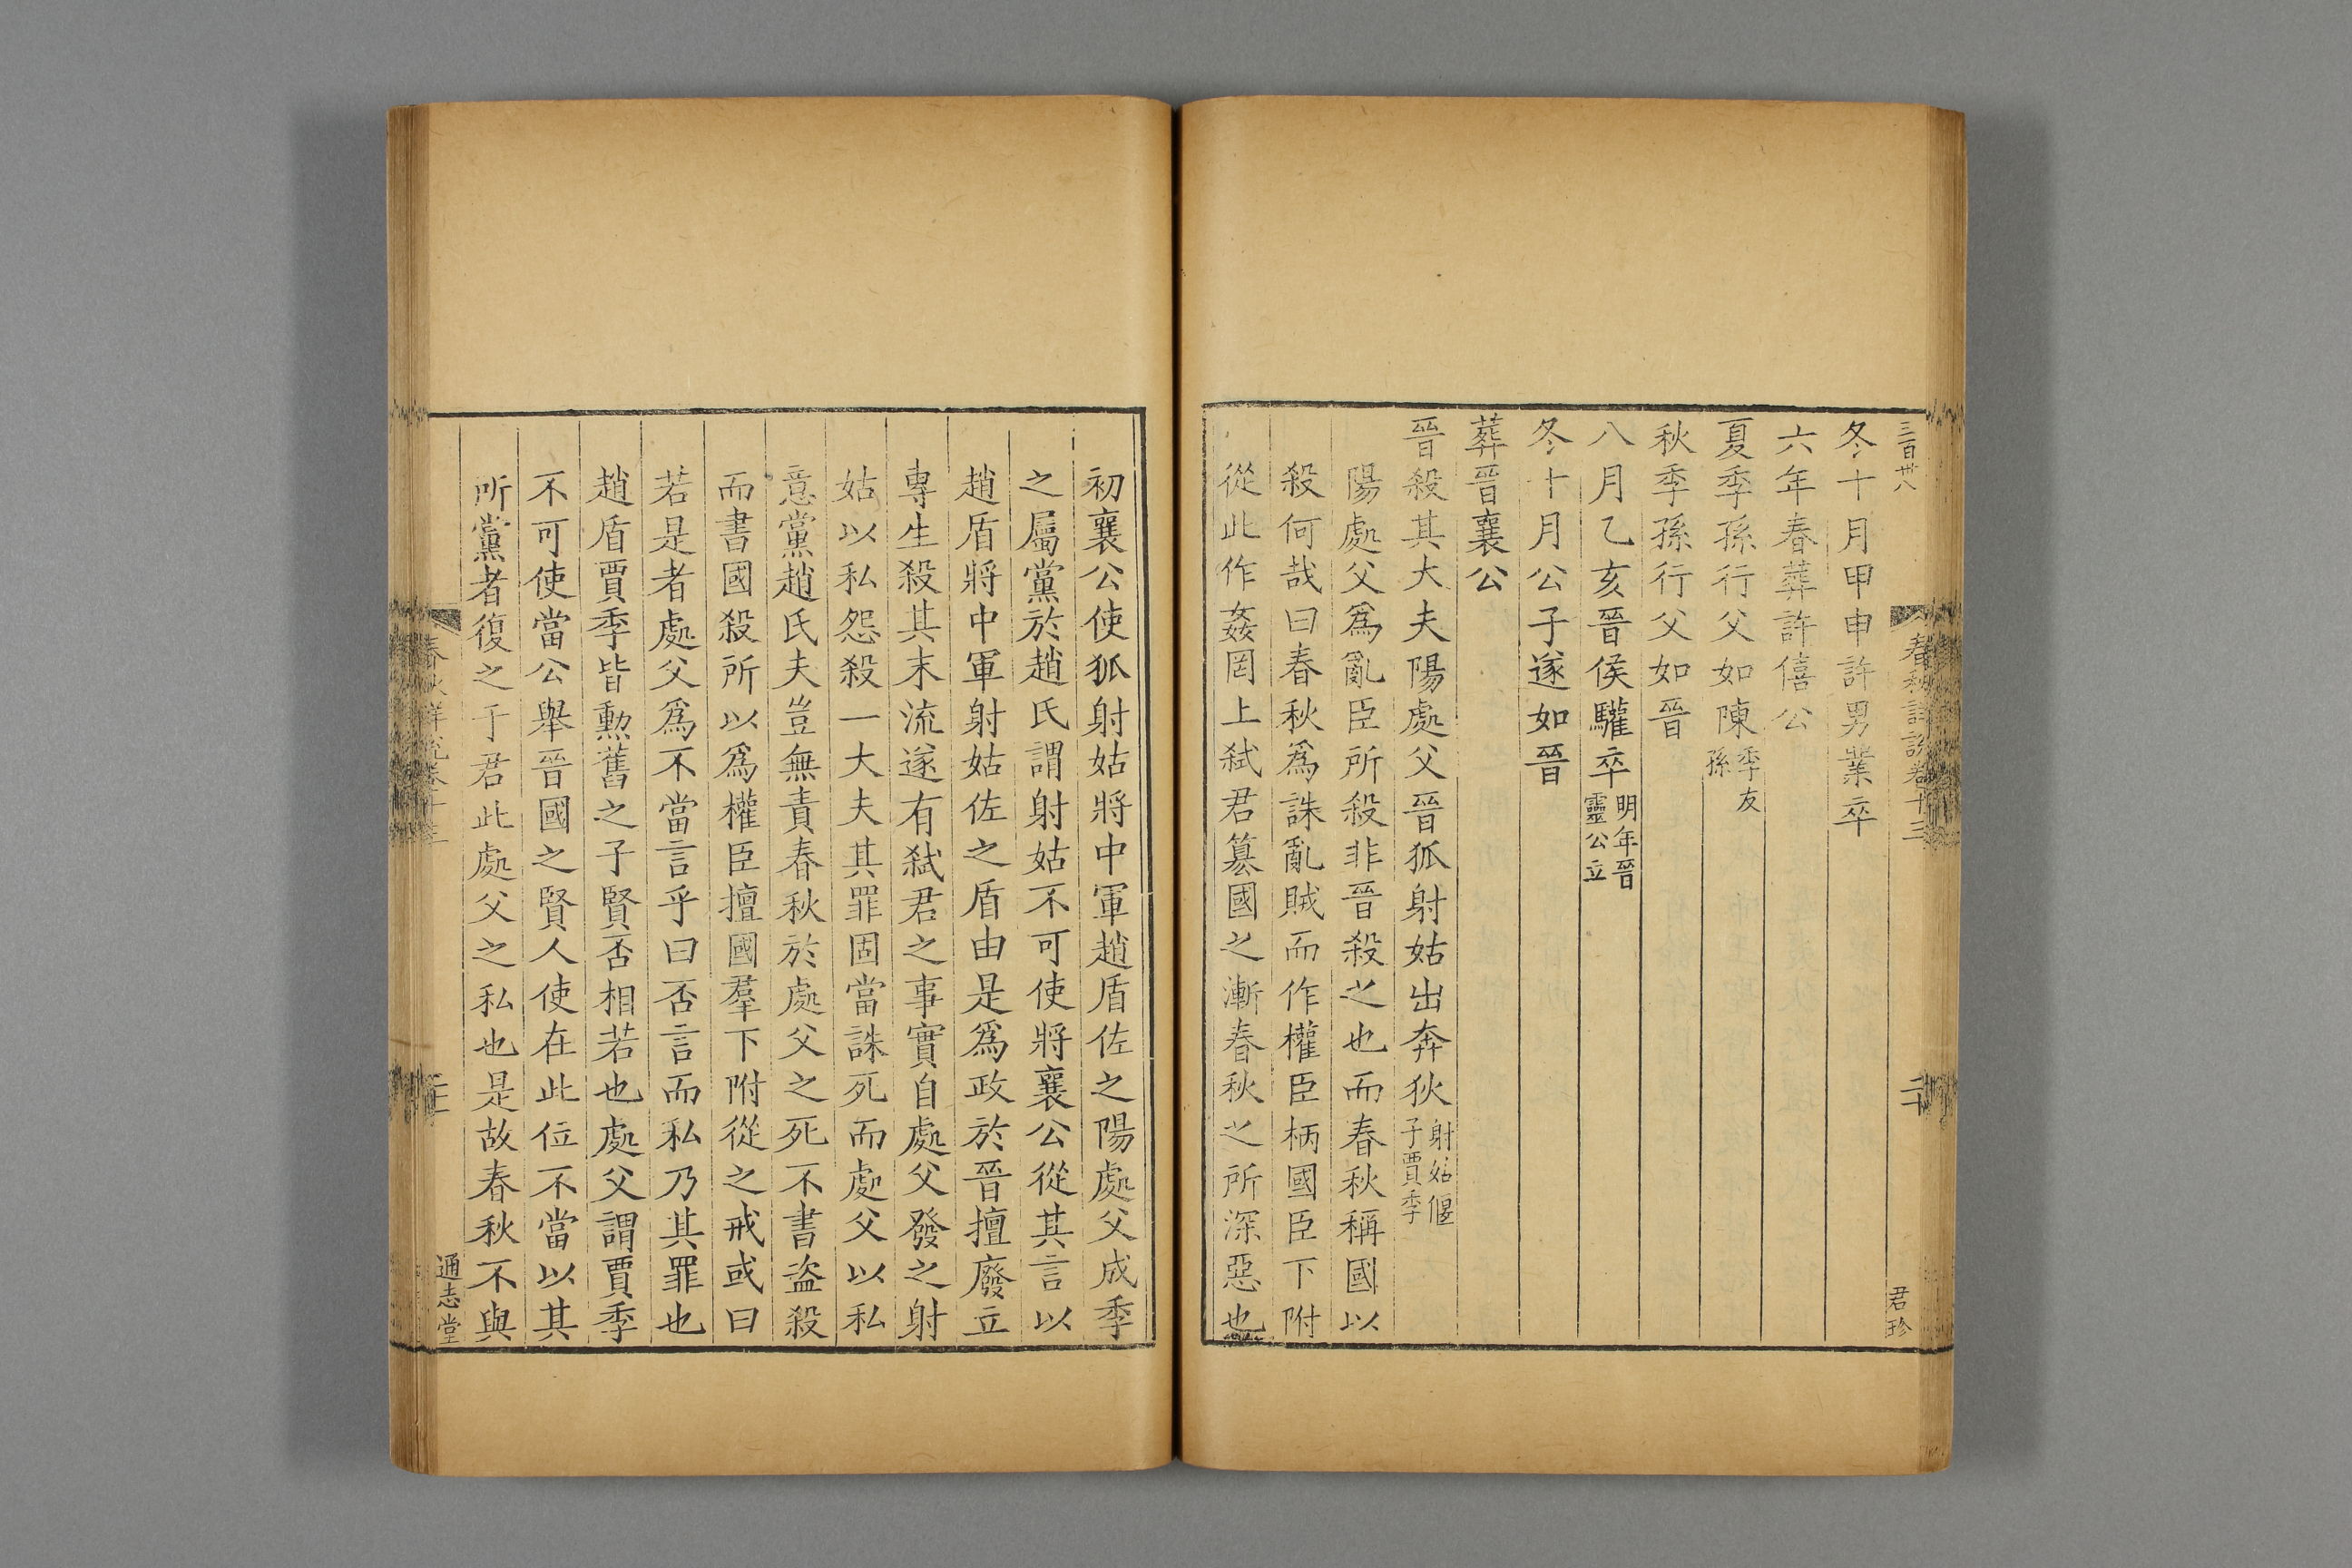 三百卅八
春秋詳說卷十三
二十
君珍
冬十月甲申許男業卒
六年春葬許僖公
夏季孫行父如陳季友孫
秋季孫行父如晉
八月乙亥晉侯驩卒明年晉靈公立
冬十月公子遂如晉
葬晉襄公
晉殺其大夫陽處父晉狐射姑出奔狄射姑偃子賈季
陽處父爲亂臣所殺非晉殺之也而春秋稱國以
殺何哉曰春秋爲誅亂賊而作權臣柄國臣下附
從此作姦罔上弑君簒國之漸春秋之所深惡也
初襄公使狐射姑將中軍趙盾佐之陽處父成季
之屬黨於趙氏謂射姑不可使將襄公從其言以
趙盾將中軍射姑佐之盾由是爲政於晉擅廢立
專生殺其末流遂有弑君之事實自處父發之射
姑以私怨殺一大夫其罪固當誅死而處父以私
意黨趙氏夫豈無責春秋於處父之死不書盗殺
而書國殺所以爲權臣擅國羣下附從之戒或曰
若是者處父爲不當言乎曰否言而私乃其罪也
趙盾賈季皆勳舊之子賢否相若也處父謂賈季
不可使當公舉晉國之賢人使在此位不當以其
所黨者復之于君此處父之私也是故春秋不與
春秋詳說卷十三
通志堂